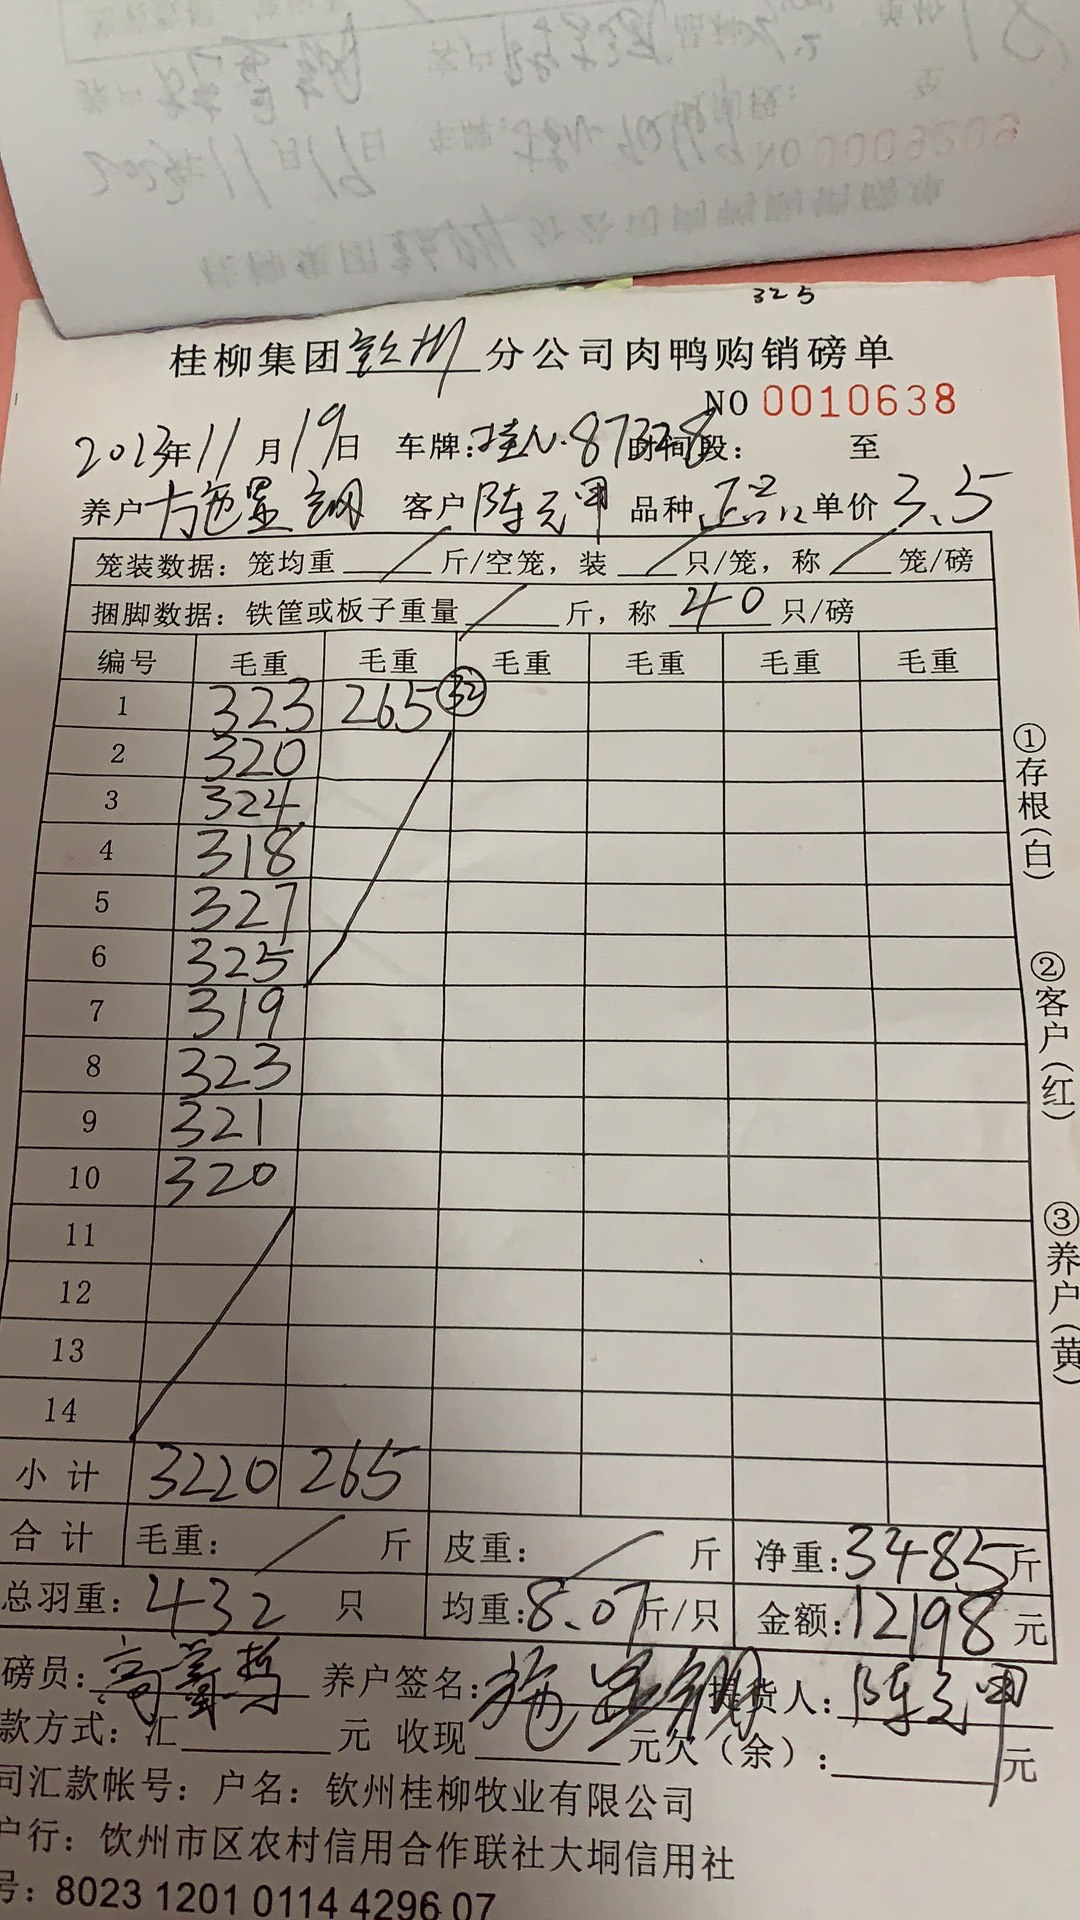 325
桂柳集团钦州分公司肉鸭购销磅单
NO 0010638
2023年11月19日 车牌:桂N·87328 时间段: 至
养户 施显钢 客户 陈元甲 品种 正品 单价 3.5
笼装数据: 笼均重 / 斤/空笼, 装 / 只/笼, 称 / 笼/磅
捆脚数据: 铁筐或板子重量 / 斤, 称 40 只/磅
编号 毛重 毛重 毛重 毛重 毛重 毛重
1 323 265 32
2 320
3 324
4 318
5 327
6 325
7 319
8 323
9 321
10 320
11
12
13
14
小计 3220 265
合计 毛重: / 斤 皮重: / 斤 净重:3485斤
总羽重: 432 只 均重:8.07斤/只 金额:12198元
磅员: 养户签名:施显钢 提货人:陈元甲
款方式: 汇 元 收现 元欠(余): 元
司汇款帐号: 户名: 钦州桂柳牧业有限公司
户行: 钦州市区农村信用合作联社大垌信用社
号: 8023 1201 0114 4296 07
①存根(白)
②客户(红)
③养户(黄)